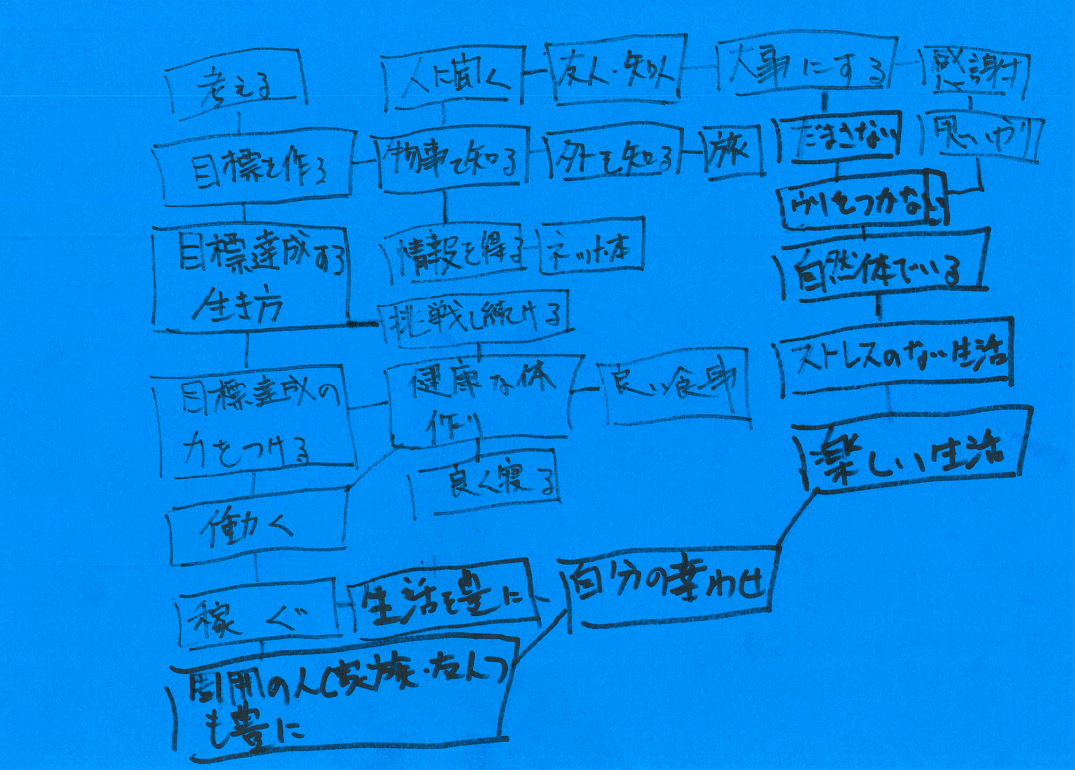 考える
人に聞く
友人・知人
大事にする
感謝
目標を作る
物事を知る
外を知る
旅
だまさない
思いやり
ウソをつかない
目標達成する
生き方
情報を得る
ネット・本
自然体でいる
挑戦し続ける
ストレスのない生活
目標達成の
力をつける
健康な体
作り
良い食事
楽しい生活
良く寝る
働く
稼ぐ
生活を豊に
自分の幸わせ
周囲の人(家族・友人)
も豊に